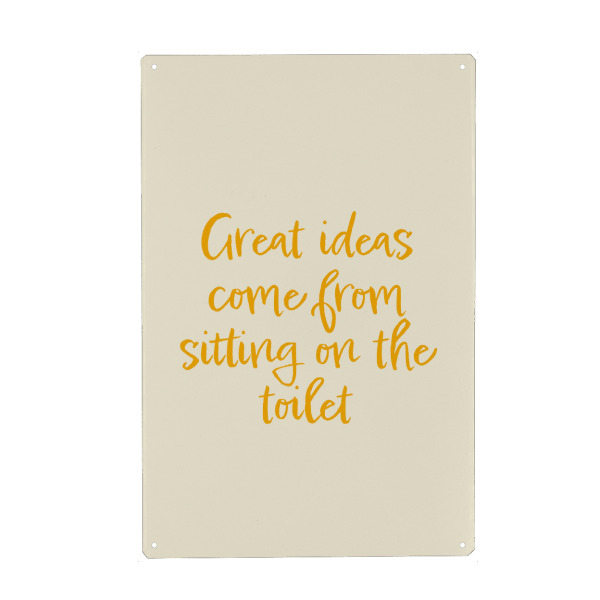 Great ideas
come from
sitting on the
toilet